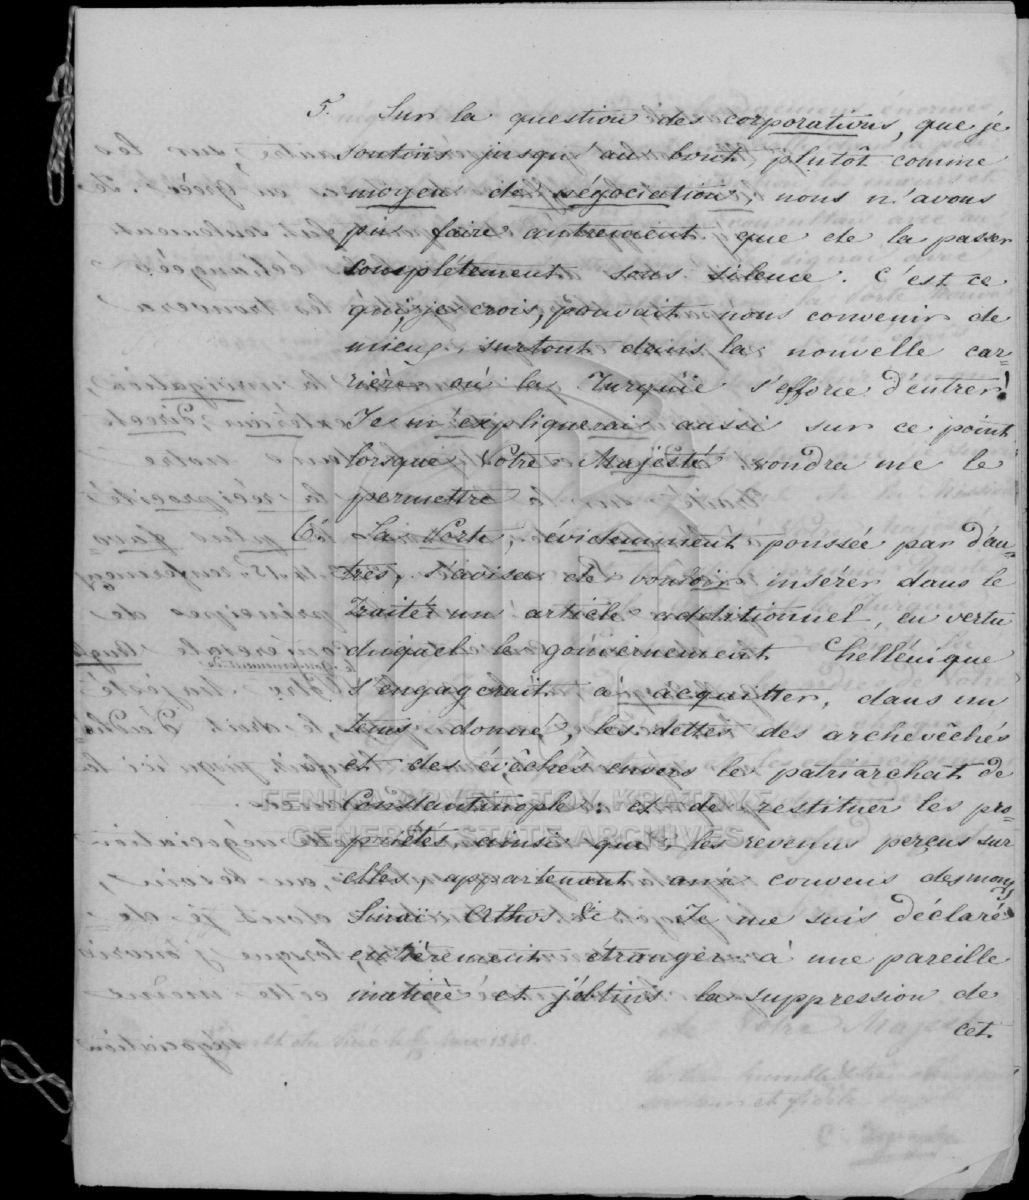 5. Sur la question des corporations, que je
soutins jusqu'au bout plutôt comme
moyen de négociation nous n'avons
pu faire autrement que de la passer
complètement sous silence. C'est ce
qui, je crois, pouvait nous convenir de
mieux, surtout dans la nouvelle car=
rière où la Turquie s'efforce d'entrer!
Je m'expliquerai aussi sur ce point
lorsque Votre Majesté voudra me le
permettre
6.° La Porte, évidemment poussée par d'au=
tres, s'avisa de vouloir insérer dans le
Traité un article additionnel, en vertu
duquel le gouvernement hellénique
s'engagerait à acquitter, dans un
tems donné, les dettes des archevêchés
et des évêchés envers le patriarchat de
Constantinople: et de restituer les pro=
priétés, ainsi que les revenus perçus sur
elles, appartenant aux couvens des monts
Sinaï Athos &c Je me suis déclaré
entièrement étranger à une pareille
matière et j'obtins la suppression de
cet
ΓΕΝΙΚΑ ΑΡΧΕΙΑ ΤΟΥ ΚΡΑΤΟΥΣ
GENERAL STATE ARCHIVES